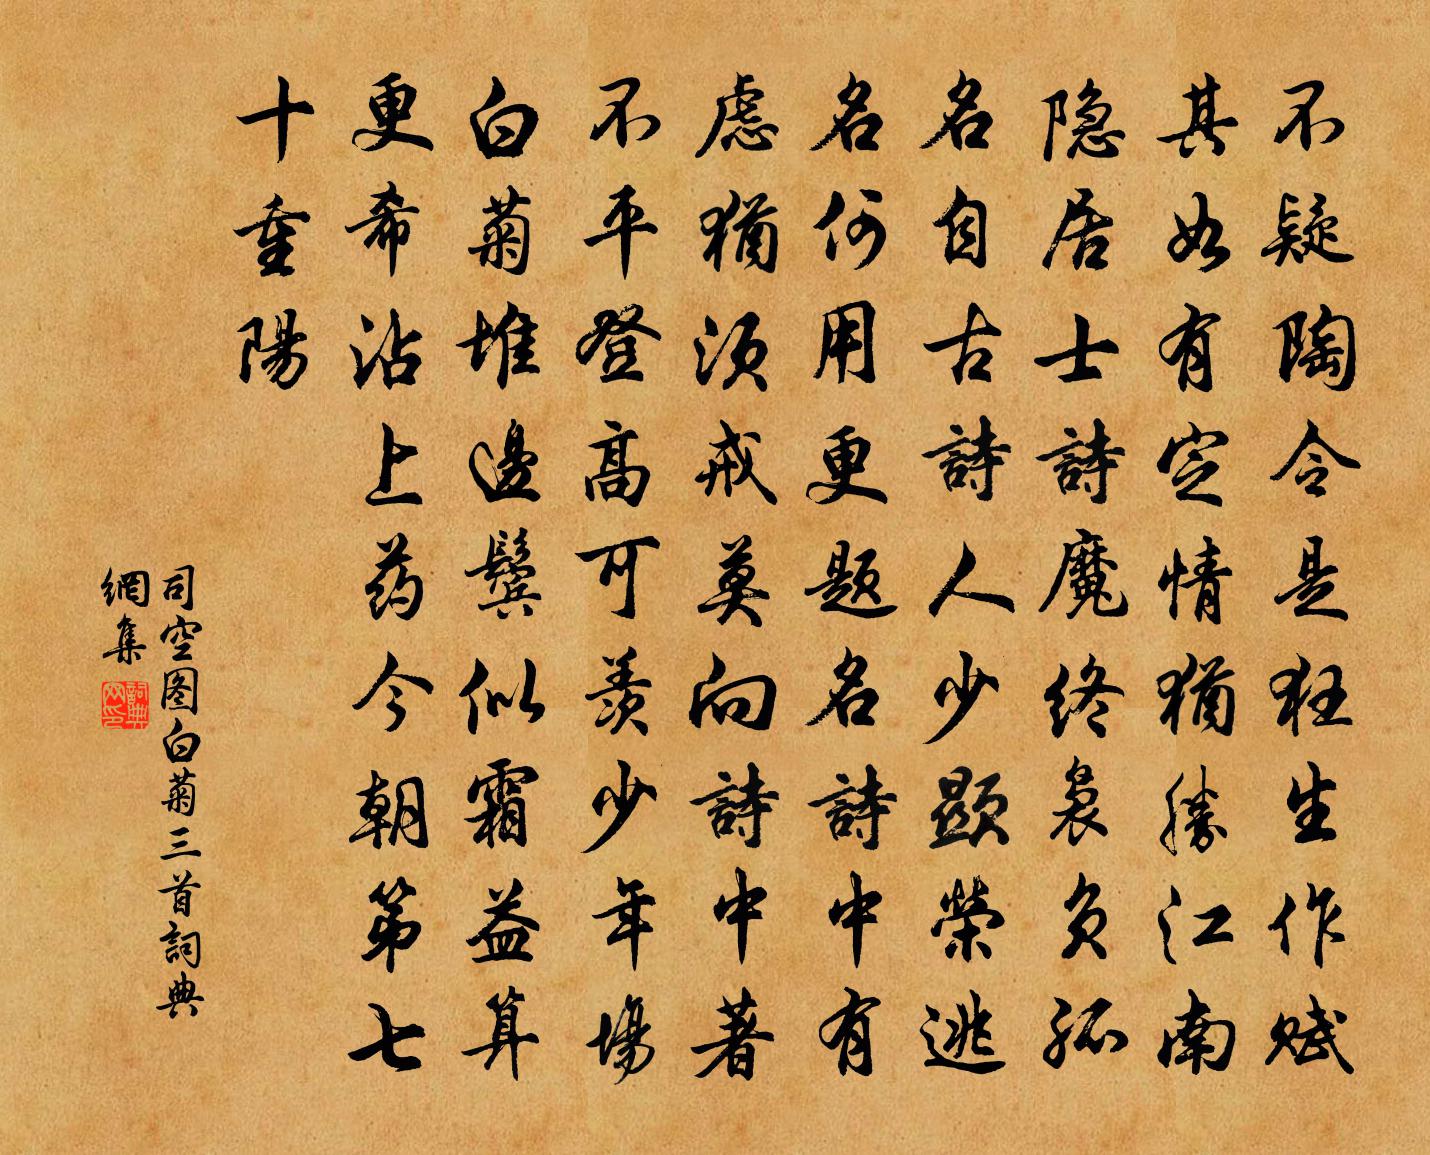 不疑陶令是狂生作赋
其如有定情猶勝江南
隐居士詩魔終裊负孤
名自古詩人少顯榮逃
名何用更题名詩中有
慮猶须戒莫向詩中著
不平登高可羡少年場
白菊堆邊鬓似霜益算
更希沾上药今朝第七
十重陽
司空图白菊三首詞典
網集
詞典
网印